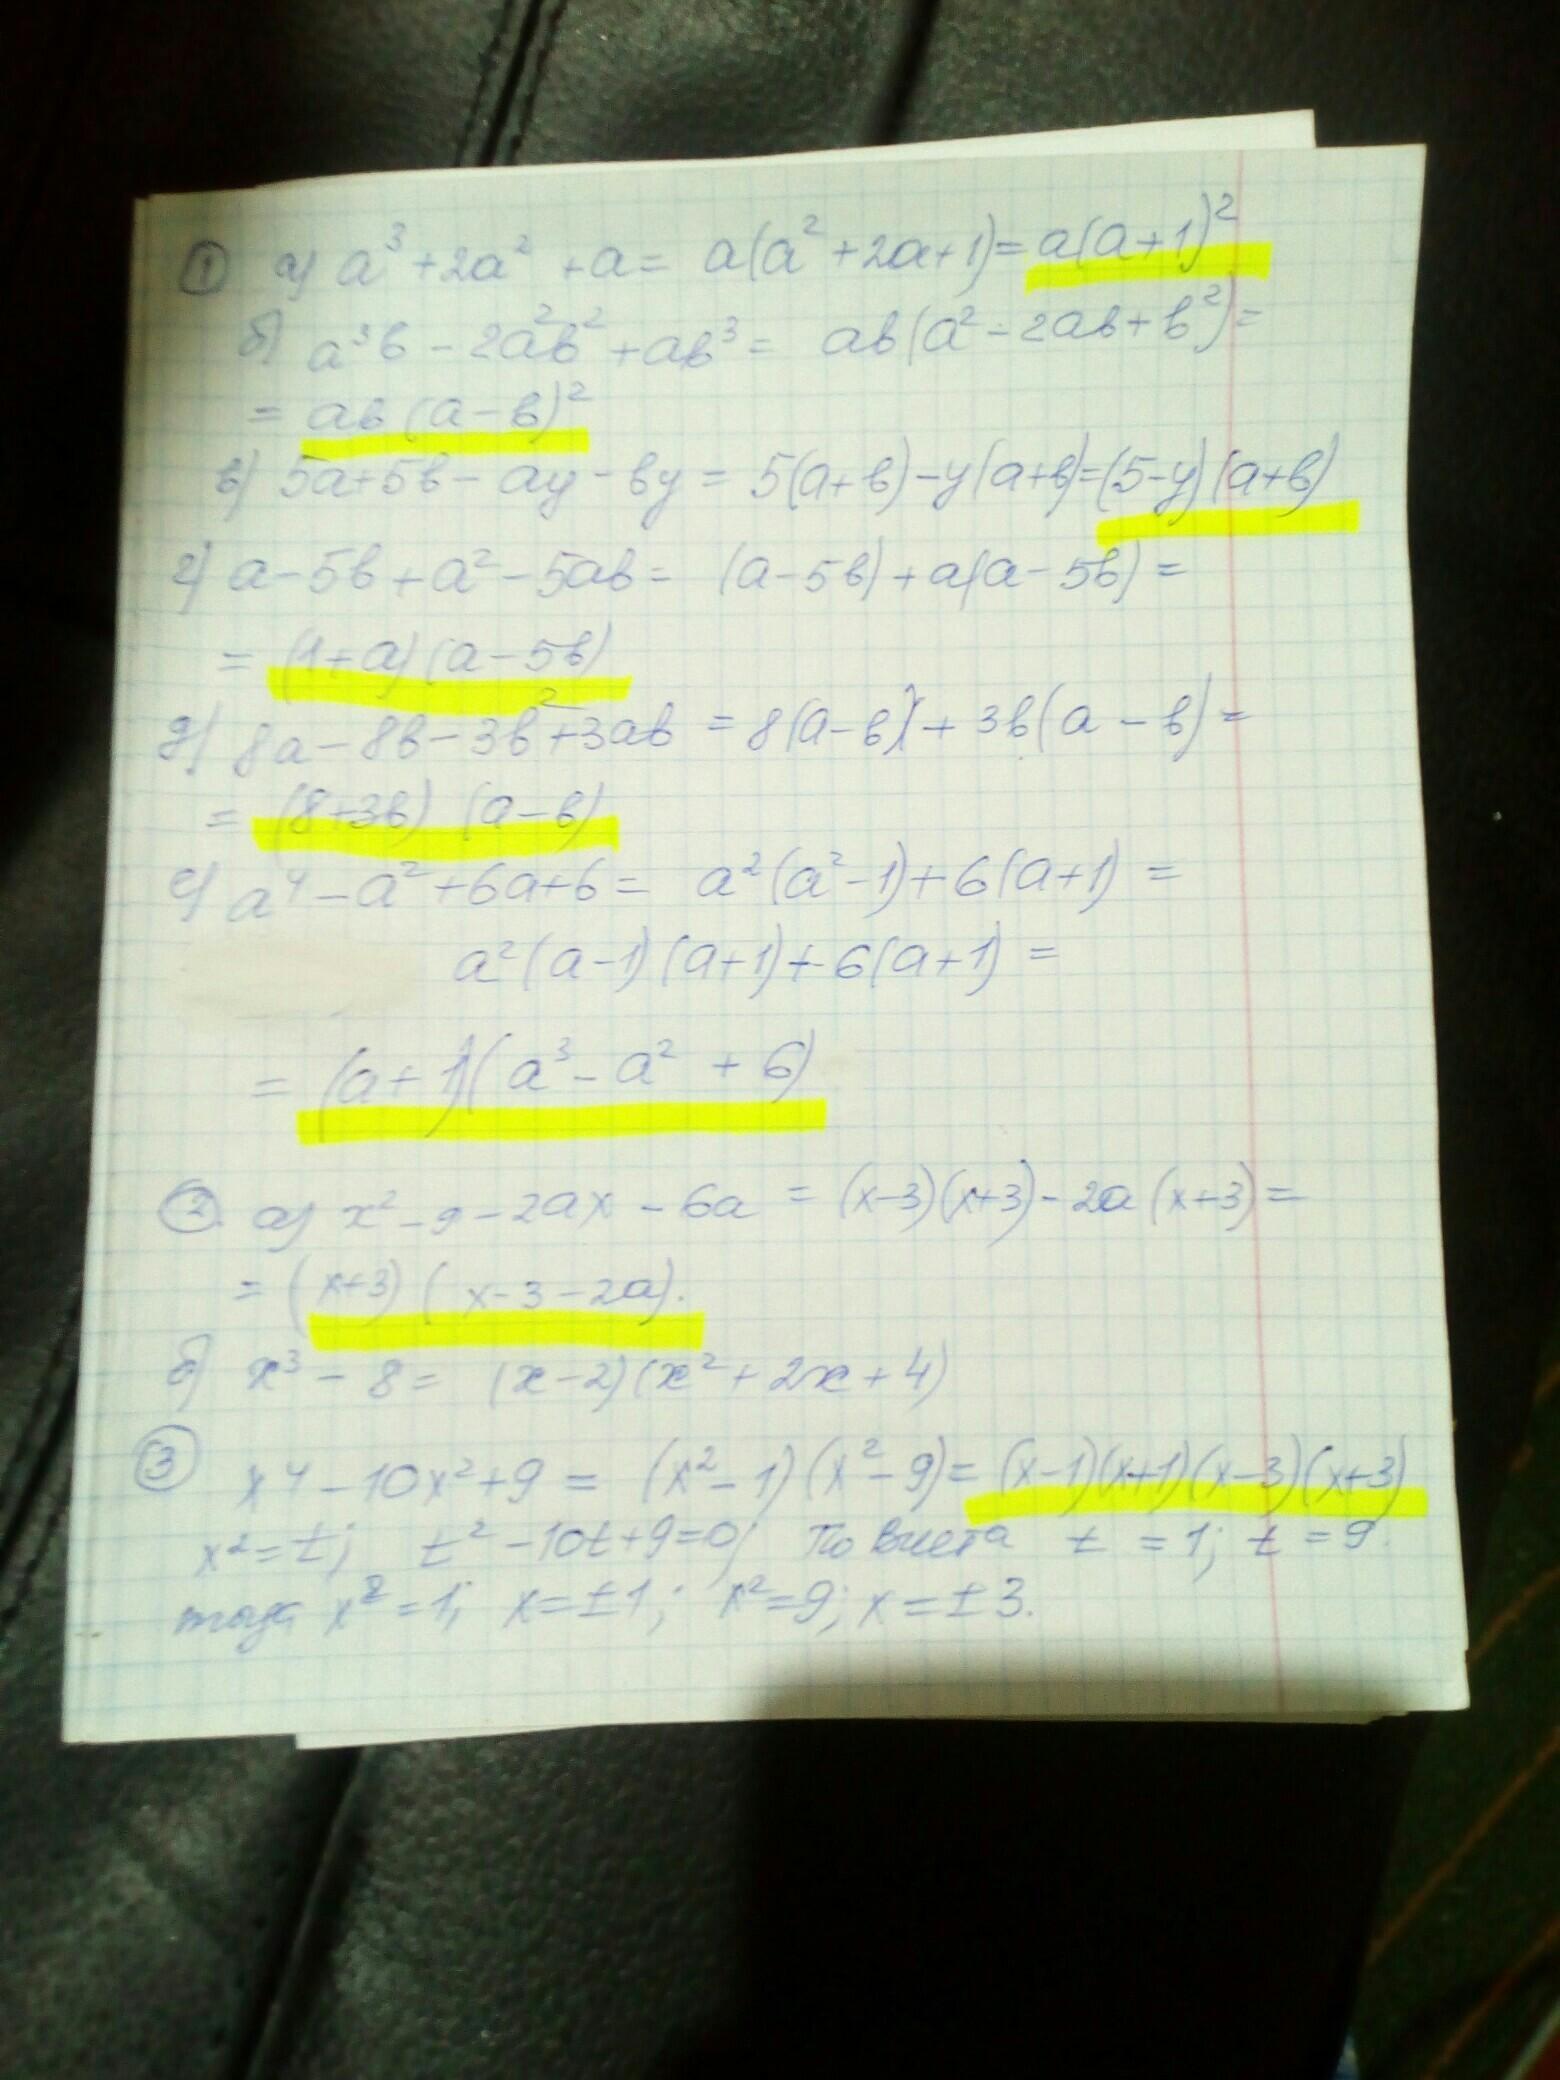 ① а) a³+2a²+a= a(a²+2a+1)=a(a+1)²
б) a³b-2a²b²+ab³= ab(a²-2ab+b²)=
= ab(a-b)²
в) 5a+5b-ay-by= 5(a+b)-y(a+b)=(5-y)(a+b)
г) a-5b+a²-5ab= (a-5b)+a(a-5b)=
= (1+a)(a-5b)
д) 8a-8b-3b²+3ab =8(a-b)+3b(a-b)=
= (8+3b)(a-b)
е) a⁴-a²+6a+6= a²(a²-1)+6(a+1)=
a²(a-1)(a+1)+6(a+1)=
= (a+1)(a³-a²+6)
② а) x²-9-2ax-6a =(x-3)(x+3)-2a(x+3)=
= (x+3)(x-3-2a).
б) x³-8= (x-2)(x²+2x+4)
③ x⁴-10x²+9= (x²-1)(x²-9)=(x-1)(x+1)(x-3)(x+3)
x²=t; t²-10t+9=0; По Виета t=1; t=9.
тогда x²=1; x=±1; x²=9; x=±3.